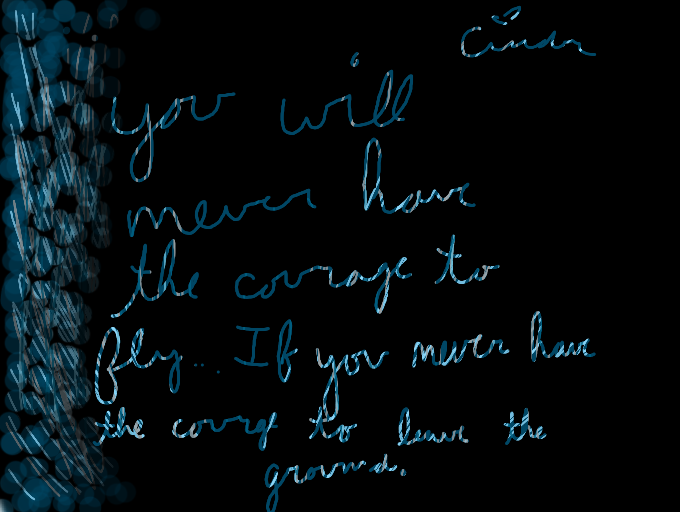 Cindy
you will
never have
the courage to
fly... If you never have
the courge to leave the
ground.